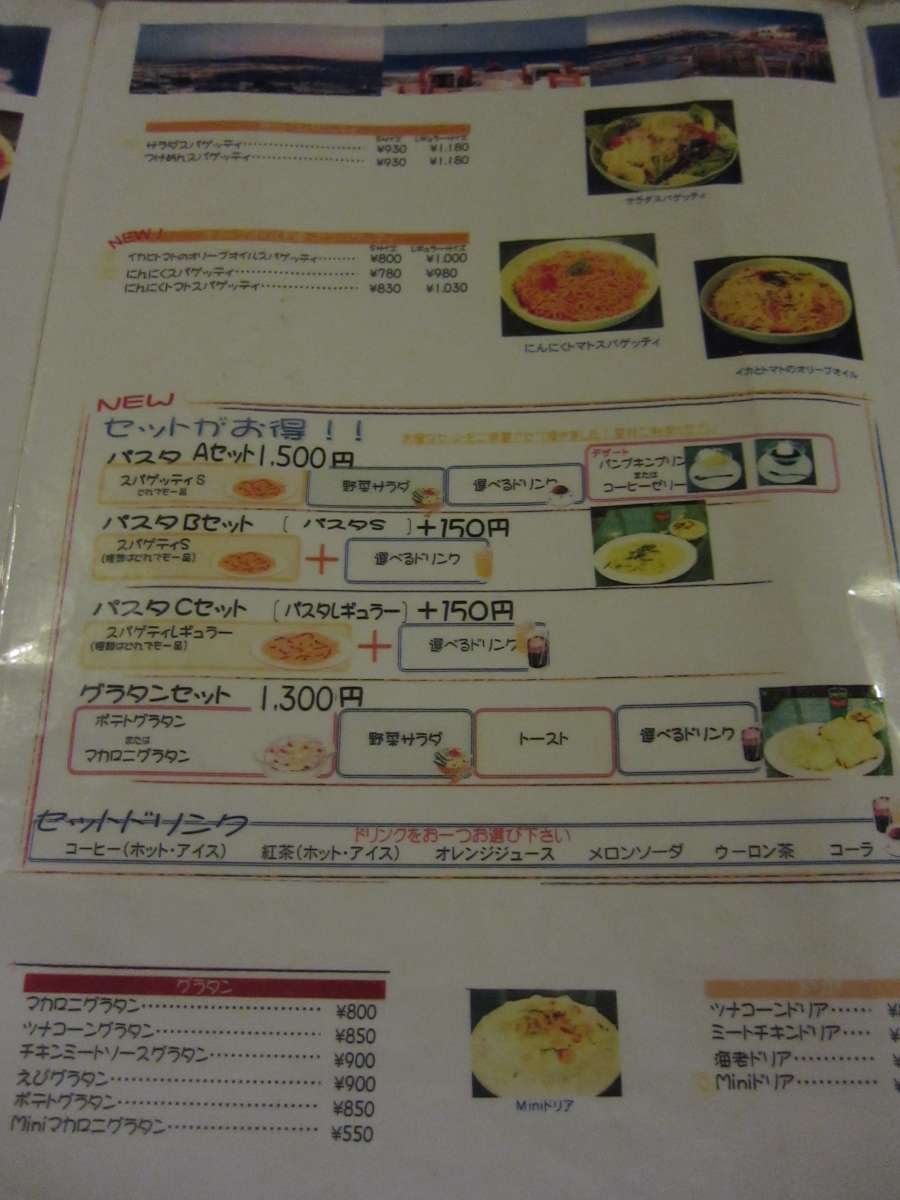 Sサイズ レギュラーサイズ
サラダスパゲッティ ¥930 ¥1.180
つけめんスパゲッティ ¥930 ¥1.180
サラダスパゲッティ
NEW!
Sサイズ レギュラーサイズ
イカとトマトのオリーブオイルスパゲッティ ¥800 ¥1.000
にんにくスパゲッティ ¥780 ¥980
にんにくトマトスパゲッティ ¥830 ¥1.030
にんにくトマトスパゲッティ
イカとトマトのオリーブオイル
NEW
セットがお得!!
パスタ Aセット 1,500円
スパゲッティS
どれでも一品
野菜サラダ
選べるドリンク
デザート
パンプキンプリン
または
コーヒーゼリー
パスタBセット (パスタS) +150円
スパゲティS
(種類はどれでも一品)
+
選べるドリンク
パスタCセット (パスタレギュラー) +150円
スパゲティレギュラー
(種類はどれでも一品)
+
選べるドリンク
グラタンセット 1,300円
ポテトグラタン
または
マカロニグラタン
野菜サラダ
トースト
選べるドリンク
セットドリンク
ドリンクをお一つお選び下さい
コーヒー(ホット・アイス) 紅茶(ホット・アイス) オレンジジュース メロンソーダ ウーロン茶 コーラ
グラタン
マカロニグラタン ¥800
ツナコーングラタン ¥850
チキンミートソースグラタン ¥900
えびグラタン ¥900
ポテトグラタン ¥850
Miniマカロニグラタン ¥550
Miniドリア
ツナコーンドリア
ミートチキンドリア
海老ドリア
Miniドリア